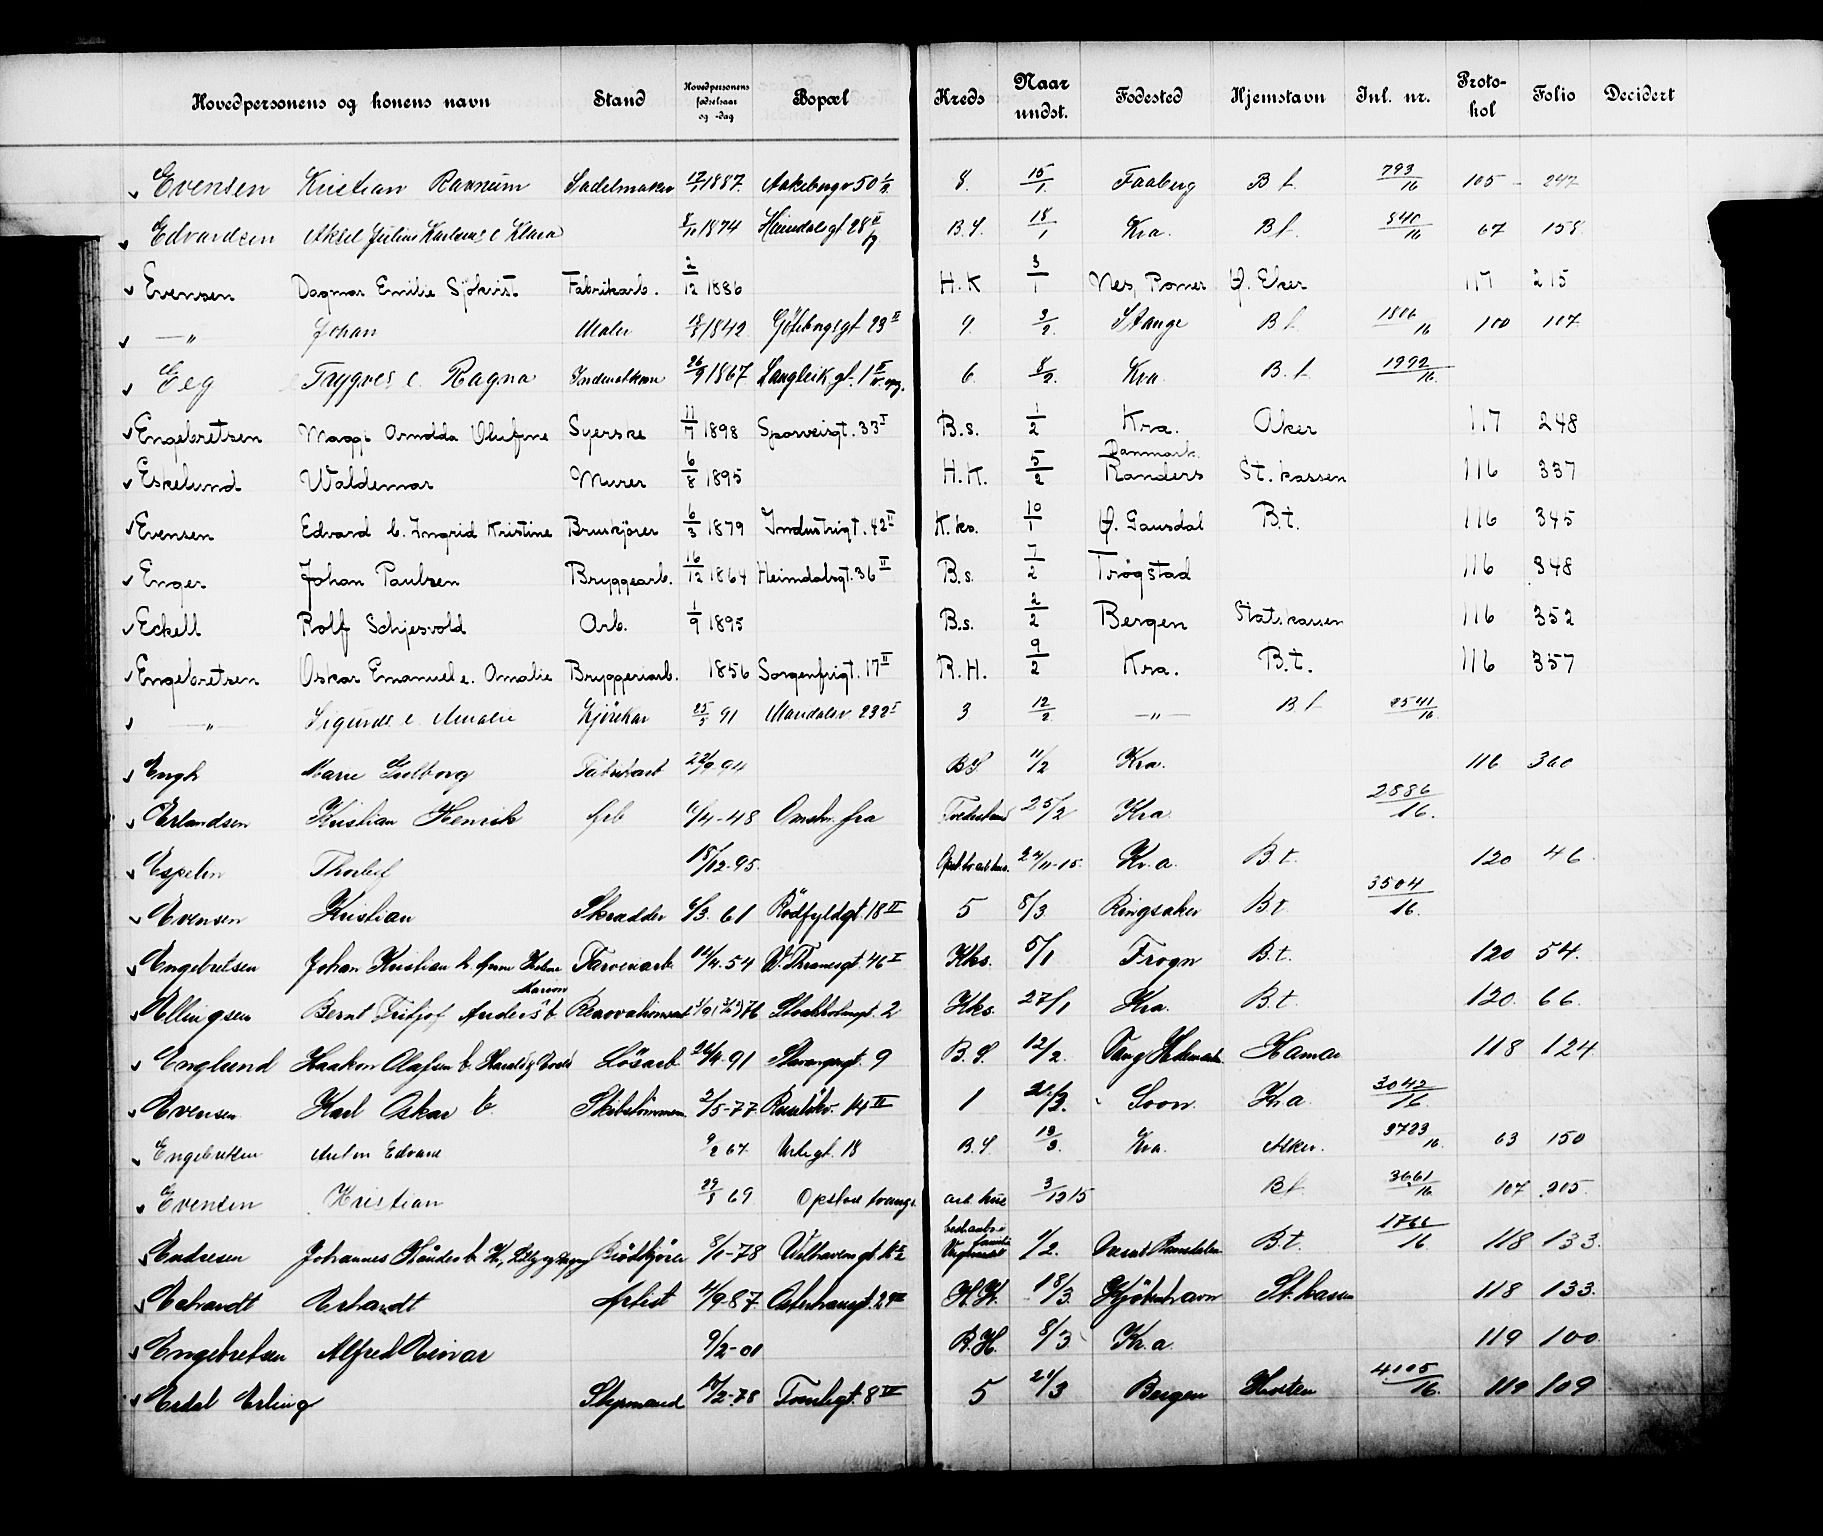 Hovedpersonens og konens navn Stand Hovedpersonens fødselsaar og -dag Bopæl Kreds Naar undst. Fødested Hjemstavn Inl. nr. Protokol Folio Decidert
Evensen Kristian Sadelmaker 1887 Aakebergv 50 8. 15/1 Faaberg B t. 793/16 105 247
Edvardsen Aksel Julius Karlem e Klara 8/11 1874 Heimdalsgt 28 II B.S. 18/1 Kra. B t. 840/16 67 158
Evensen Dagmar Emilie Sjökvist Fabrikarb. 2/12 1886 H.K 3/1 Nes, Romer Ø. Eker 117 215
—"— Johan Maler 1842 Göteborggt 23 II 9 3/2 Stange B t. 1806/16 100 107
Eeg Trygves e. Ragna 26/9 1867 Langleik gt. 1 II 6 8/2 Kra. B. t. 1992/16
Engebretsen Maggi Arnolda Olufine Syerske 11/7 1898 Sporveisgt. 33 I B.s. 1/2 Kra. Aker 117 248
Eskelund Waldemar Murer 6/8 1895 H.K. 5/2 Danmark Randers St. kassen 116 337
Evensen Edvard b. Ingrid Kristine Bruskjører 6/3 1879 Industrigt. 42 II K.ks. 10/1 Ø. Gausdal B.t. 116 345
Enger Johan Paulsen Bryggearb. 16/12 1864 Heimdalsgt. 36 II B.s. 7/2 Trøgstad 116 348
Eckell Rolf Schjesvold Arb. 1/9 1895 B.s. 2/2 Bergen Statskassen 116 352
Engebretsen Oskar Emanuel e. Amalie Bryggeriarb. 1856 Sorgenfrigt. 17 II R.H. 9/2 Kra. B.t. 116 357
—"— Sigurds e. Amalie Kjörekar 25/5 91 Mandalsv 232 I 3 12/2 —"— B t 2541/16
Engh Marie Gulborg Fabrikarb 22/9 94 B S 11/2 Kra. 116 360
Erlandsen Kristian Henrik Arb 6/4-48 Omstr. fra Tvedestrand 25/2 Kra 2886/16.
Espelin Thorleif 18/12-95. 24/11-15. Kr.a. B.t. 120 46.
Evensen Kristian Skrædder 6/3.61 Rødfyldgt. 18 II 5 8/3 Ringsaker B.t 3504/16.
Engebretsen Johan Kristian b. Anna Farveriarb. 4.54 W. Thranesgt. 46 I Kks. 5/1 Frogn B.t. 120 54.
Ellingsen Bernt Fritjof Anders b. Marion Renovationsarb 76 Stockholmgt. 2 Kks. 27/1 Kra. B.t 120. 66.
Englund Haakon Olafsen b. Harald Løsarb. 4-91 Stavangergt. 9 B.S. 12/2. Vang Hedmark Hamar 118 124
Evensen Karl Oskar b. 2/5-77. 14 II 1 Soon. Kr.a. 3042/16
Engebretsen Anton Edvard 9/2 67. Urtegt. 18 B.S. 13/3. Kra. Aker. 3723/16. 63 150
Evensen Kristian 29/8 69 Opstad tvangs arb hus 3/12 15 B t. 3661/16 107 205.
Endresen Johannes Brödkjörer 8/1-78 Welhavensgt. 1/2. B.t. 1766/16 118 133.
Echardt Erhardt Artist 4/9-87. H.K. 18/3. Kjöbenhavn St. kassen 118 133.
Engebretsen Alfred Reivar 9/2-01 R.H. 8/3 Kr.a. 119 100.
Erdal Erling Styrmand 2.78 Tomtegt. 8 IV 5 21/3 Bergen Horten 4105/16. 119 109